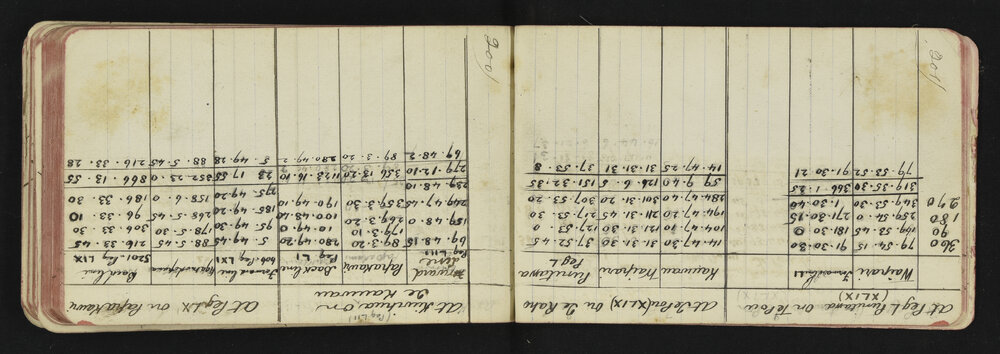 201
At Peg L Purutana On Te Poie
(XLIX)
Waipari
360 79.54.15 91.30.30
90 169.52.45 181.30.0
180 259.54.0 271.30.15
270 349.53.30 1.30.40
319.35.30 366.1.25
79.53.52 91.30.21
At Te Pou (XLIX) On Te Rapa
Kauwau Waipara Purutawa
Peg L
14.47.30 31.31.30 37.52.45
104.47.10 121.31.30 127.53.0
194.47.20 211.31.45 217.53.30
284.47.40 301.31.20 307.53.20
59.9.40 126.6.5 151.32.35
14.47.25 31.31.31 37.53.8
200
(Peg LII)
At Niurihia On
Te Kauwau
Line Papakauri Back line
Peg LIII Peg LI
69.48.15 89.3.20 280.49.20
159.48.0 179.3.10 10.49.0
249.47.45 269.3.20 100.48.40
339.48.10 359.3.30 190.49.10
279.12.10 356.13.20 1123.16.10
69.48.2 89.3.20 280.49.2
At Peg LX) on Papakauri
Forward line Back line
Peg LXI Peg LIX
5.49.45 88.5.45 216.33.45
95.49.30 178.5.30 306.33.30
185.49.20 268.5.45 36.33.10
275.49.20 358.6.0 126.33.30
23.17.55 352.23.0 866.13.55
5.49.28 88.5.45 216.33.28